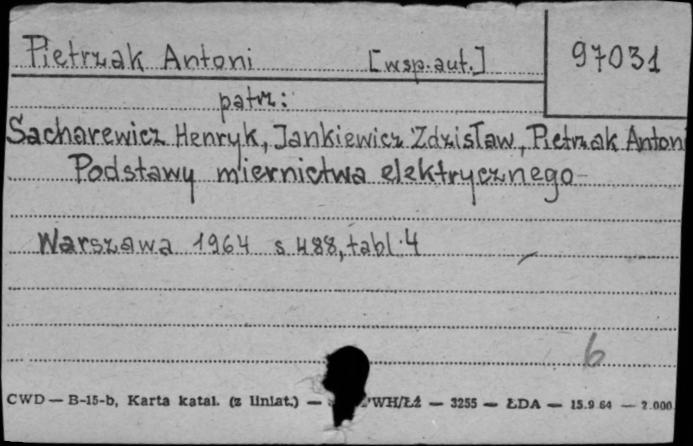 Pietrzak Antoni [wsp.aut.] 97031
patrz:
Sacharewicz Henryk, Jankiewicz Zdzisław, Pietrzak Antoni
Podstawy miernictwa elektrycznego
Warszawa 1964 s 488, tabl. 4
6
CWD — B-15-b, Karta katal. (z liniat.) — WH/ŁŹ — 3255 — ŁDA — 15.9.64 — 2.000